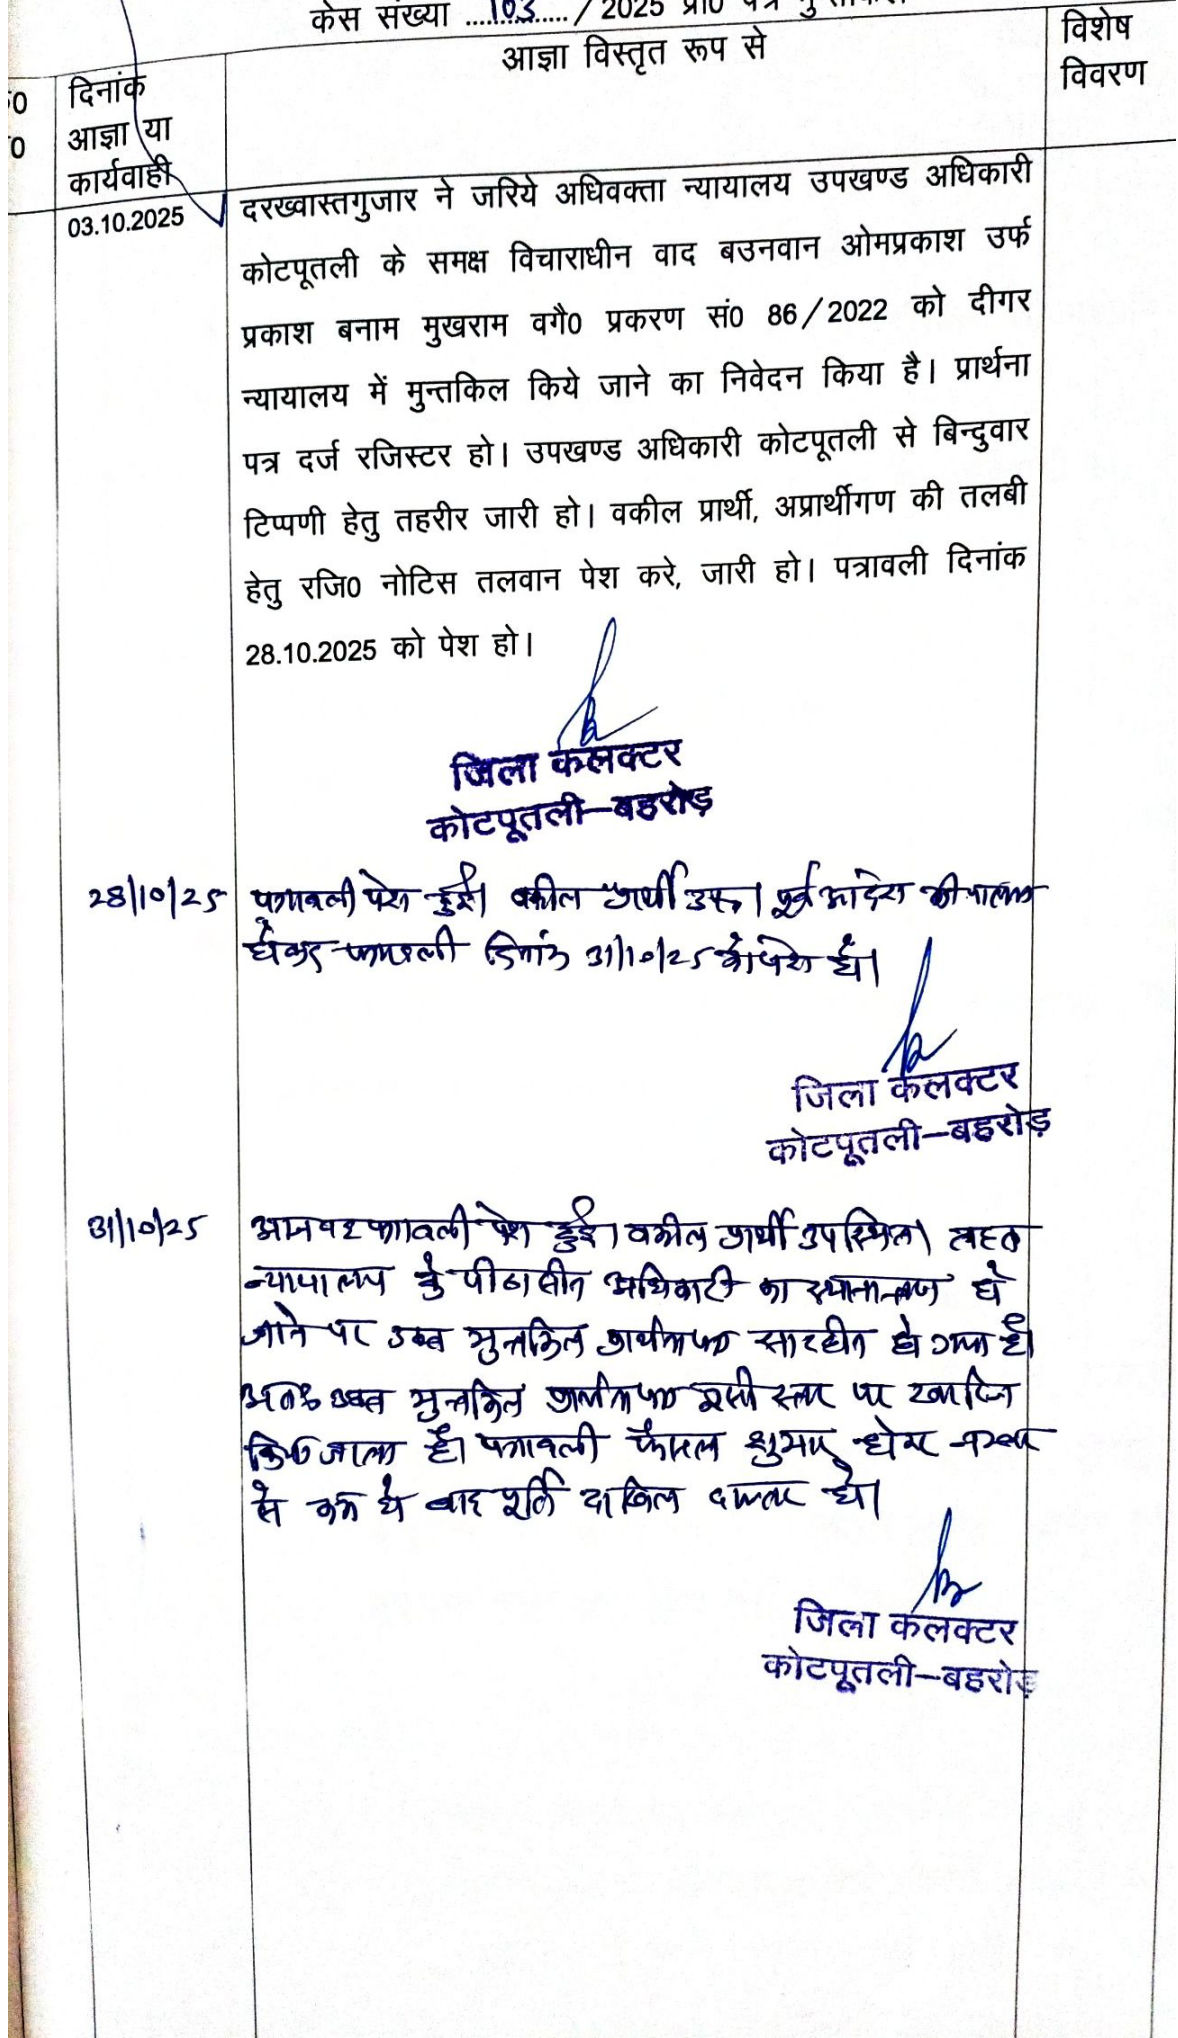 केस संख्या ....103..../2025 प्रा0 पत्र
आज्ञा विस्तृत रूप से
विशेष
विवरण
दिनांक
आज्ञा या
कार्यवाही
03.10.2025
दरख्वास्तगुजार ने जरिये अधिवक्ता न्यायालय उपखण्ड अधिकारी
कोटपूतली के समक्ष विचाराधीन वाद बउनवान ओमप्रकाश उर्फ
प्रकाश बनाम मुखराम वगै0 प्रकरण सं0 86/2022 को दीगर
न्यायालय में मुन्तकिल किये जाने का निवेदन किया है। प्रार्थना
पत्र दर्ज रजिस्टर हो। उपखण्ड अधिकारी कोटपूतली से बिन्दुवार
टिप्पणी हेतु तहरीर जारी हो। वकील प्रार्थी, अप्रार्थीगण की तलबी
हेतु रजि0 नोटिस तलवान पेश करे, जारी हो। पत्रावली दिनांक
28.10.2025 को पेश हो।
जिला कलक्टर
कोटपूतली-बहरोड़
28/10/25 पत्रावली पेश हुई। वकील प्रार्थी उप0। पूर्व आदेश की पालना
होकर पत्रावली दिनांक 31/10/25 को पेश हो।
जिला कलक्टर
कोटपूतली-बहरोड़
31/10/25 आज यह पत्रावली पेश हुई। वकील प्रार्थी उपस्थित। तहत
न्यायालय के पीठासीन अधिकारी का स्थानान्तरण हो
जाने पर उक्त मुन्तकिल प्रार्थनापत्र सारहीन हो गया है।
अतः उक्त मुन्तकिल प्रार्थनापत्र इसी स्तर पर खारिज
किया जाता है। पत्रावली फैसल शुमार होकर नम्बर
से कम हो बाद पूर्ति दाखिल दफ्तर हो।
जिला कलक्टर
कोटपूतली-बहरोड़